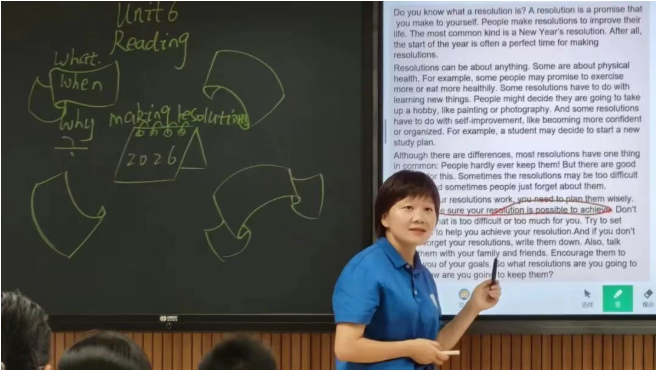 Unit 6
Reading
what.
when
why
making resolutions
2026
Do you know what a resolution is? A resolution is a promise that
you make to yourself. People make resolutions to improve their
life. The most common kind is a New Year's resolution. After all,
the start of the year is often a perfect time for making
resolutions.
Resolutions can be about anything. Some are about physical
health. For example, some people may promise to exercise
more or eat more healthily. Some resolutions have to do with
learning new things. People might decide they are going to take
up a hobby, like painting or photography. And some resolutions
have to do with self-improvement, like becoming more confident
or organized. For example, a student may decide to start a new
study plan.
Although there are differences, most resolutions have one thing
in common: People hardly ever keep them! But there are good
for this. Sometimes the resolutions may be too difficult
d sometimes people just forget about them.
ur resolutions work, you need to plan them wisely.
e sure your resolution is possible to achieve. Don't
hat is too difficult or too much for you. Try to set
to help you achieve your resolution.And if you don't
orget your resolutions, write them down. Also, talk
them with your family and friends. Encourage them to
you of your goals. So what resolutions are you going to
ow are you going to keep them?
选择
笔